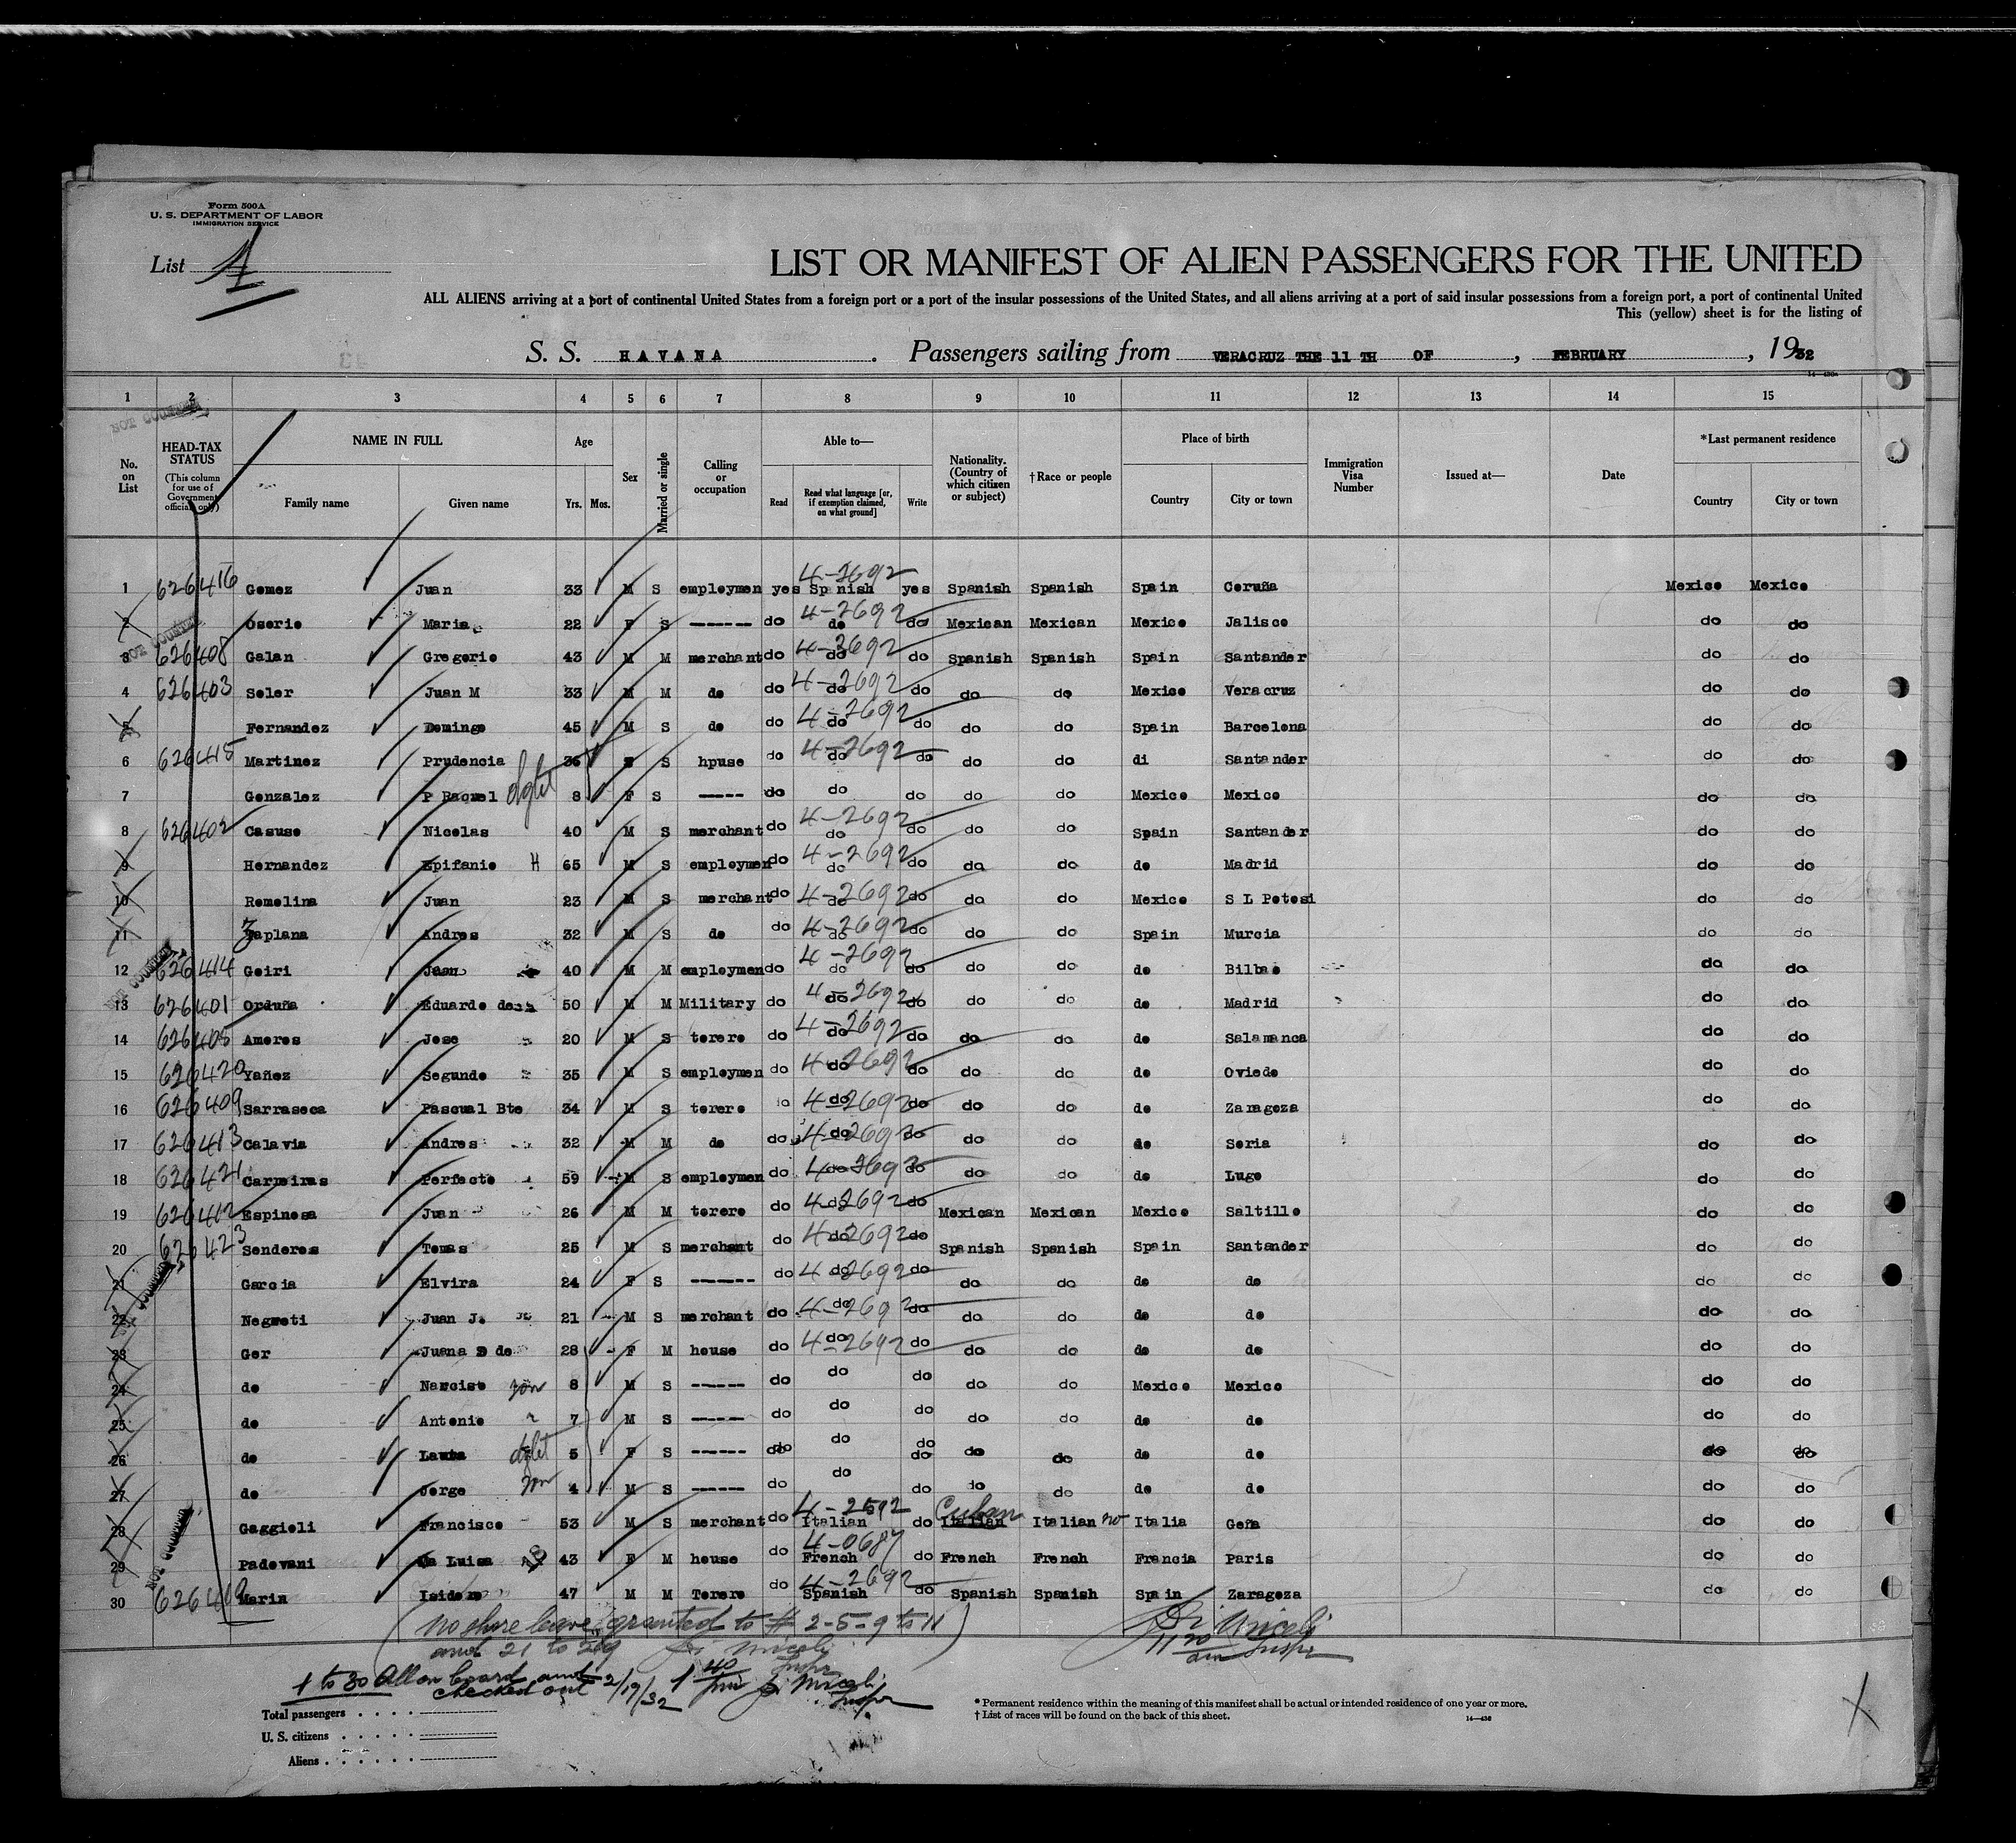 Form 500A
U. S. DEPARTMENT OF LABOR
IMMIGRATION SERVICE
List A
LIST OR MANIFEST OF ALIEN PASSENGERS FOR THE UNITED
ALL ALIENS arriving at a port of continental United States from a foreign port or a port of the insular possessions of the United States, and all aliens arriving at a port of said insular possessions from a foreign port, a port of continental United
This (yellow) sheet is for the listing of
S. S. HAVANA . Passengers sailing from VERACRUZ THE 11 TH OF , FEBRUARY , 1932
14—430a
1 2 3 4 5 6 7 8 9 10 11 12 13 14 15
NOT COUNTED
No. on List
HEAD-TAX STATUS (This column for use of Government officials only)
NAME IN FULL Family name Given name
Age Yrs. Mos.
Sex
Married or single
Calling or occupation
Able to— Read Read what language [or, if exemption claimed, on what ground] Write
Nationality. (Country of which citizen or subject)
†Race or people
Place of birth Country City or town
Immigration Visa Number
Issued at—
Date
*Last permanent residence Country City or town
1 626416 Gomez Juan 33 M S employmen yes 4-2692 Spanish yes Spanish Spanish Spain Coruña Mexico Mexico
2 Osorio Maria 22 F S ------ do 4-2692 do do Mexican Mexican Mexico Jalisco do do
3 626408 Galan Gregorio 43 M M merchant do 4-2692 do do Spanish Spanish Spain Santander do do
4 626403 Soler Juan M 33 M M do do 4-2692 do do do do Mexico Veracruz do do
5 Fernandez Domingo 45 M S do do 4-2692 do do do do Spain Barcelona do do
6 626415 Martinez Prudencia 36 S hpuse do 4-2692 do do do do di Santander do do
7 Gonzalez P Raquel dght 8 F S ----- do do do do do Mexico Mexico do do
8 626402 Casuso Nicolas 40 M S merchant do 4-2692 do do do do Spain Santander do do
9 Hernandez Epifanio H 65 M S employmen do 4-2692 do do do do do Madrid do do
10 Remolina Juan 23 M S merchant do 4-2692 do do do do Mexico S L Potosi do do
11 Zaplana Andres 32 M S do do 4-2692 do do do do Spain Murcia do do
12 626414 Goiri Juan 40 M M employmen do 4-2692 do do do do do Bilbao do do
13 626401 Orduña Eduardo de 50 M M Military do 4-2692 do do do do do Madrid do do
14 626405 Amoros Jose 20 M S torero do 4-2692 do do do do do Salamanca do do
15 626420 Yañez Segundo 35 M S employmen do 4-2692 do do do do do Oviedo do do
16 626409 Sarraseca Pascual Bto 34 M S torero do 4-2692 do do do do do Zaragoza do do
17 626413 Calavia Andres 32 M M do do 4-2692 do do do do do Soria do do
18 626421 Carreiras Perfecto 59 M S employmen do 4-2692 do do do do do Lugo do do
19 626412 Espinosa Juan 26 M M torero do 4-2692 do do Mexican Mexican Mexico Saltillo do do
20 626423 Senderos Tomas 25 M S merchant do 4-2692 do do Spanish Spanish Spain Santander do do
21 Garcia Elvira 24 F S ------- do 4-2692 do do do do do do do do
22 Negreti Juan J. 21 M S merchant do 4-2692 do do do do do do do do
23 Gor Juana D de 28 F M house do 4-2692 do do do do do do do do
24 do Narciso son 8 M S ------ do do do do do Mexico Mexico do do
25 do Antonio 7 M S ------ do do do do do do do do do
26 do Laura dght 5 F S ------ do do do do do do do do do
27 do Jorge son 4 M S ------ do do do do do do do do do
28 Gaggioli Francisco 53 M S merchant do 4-2592 Italian do Cuban Italian Italian no Italia Goña do do
29 Padovani Ma Luisa 43 F M house do 4-0687 French do French French Francia Paris do do
30 Marin Isidoro 47 M M Torero do 4-2692 Spanish do Spanish Spanish Spain Zaragoza do do
(no shore leave granted to # 2-5-9 to 11
and 21 to 29)
1 to 30 All on board and
checked out 2/17/32
Total passengers . . . .
U. S. citizens . . . . .
Aliens . . . . . .
* Permanent residence within the meaning of this manifest shall be actual or intended residence of one year or more.
† List of races will be found on the back of this sheet.